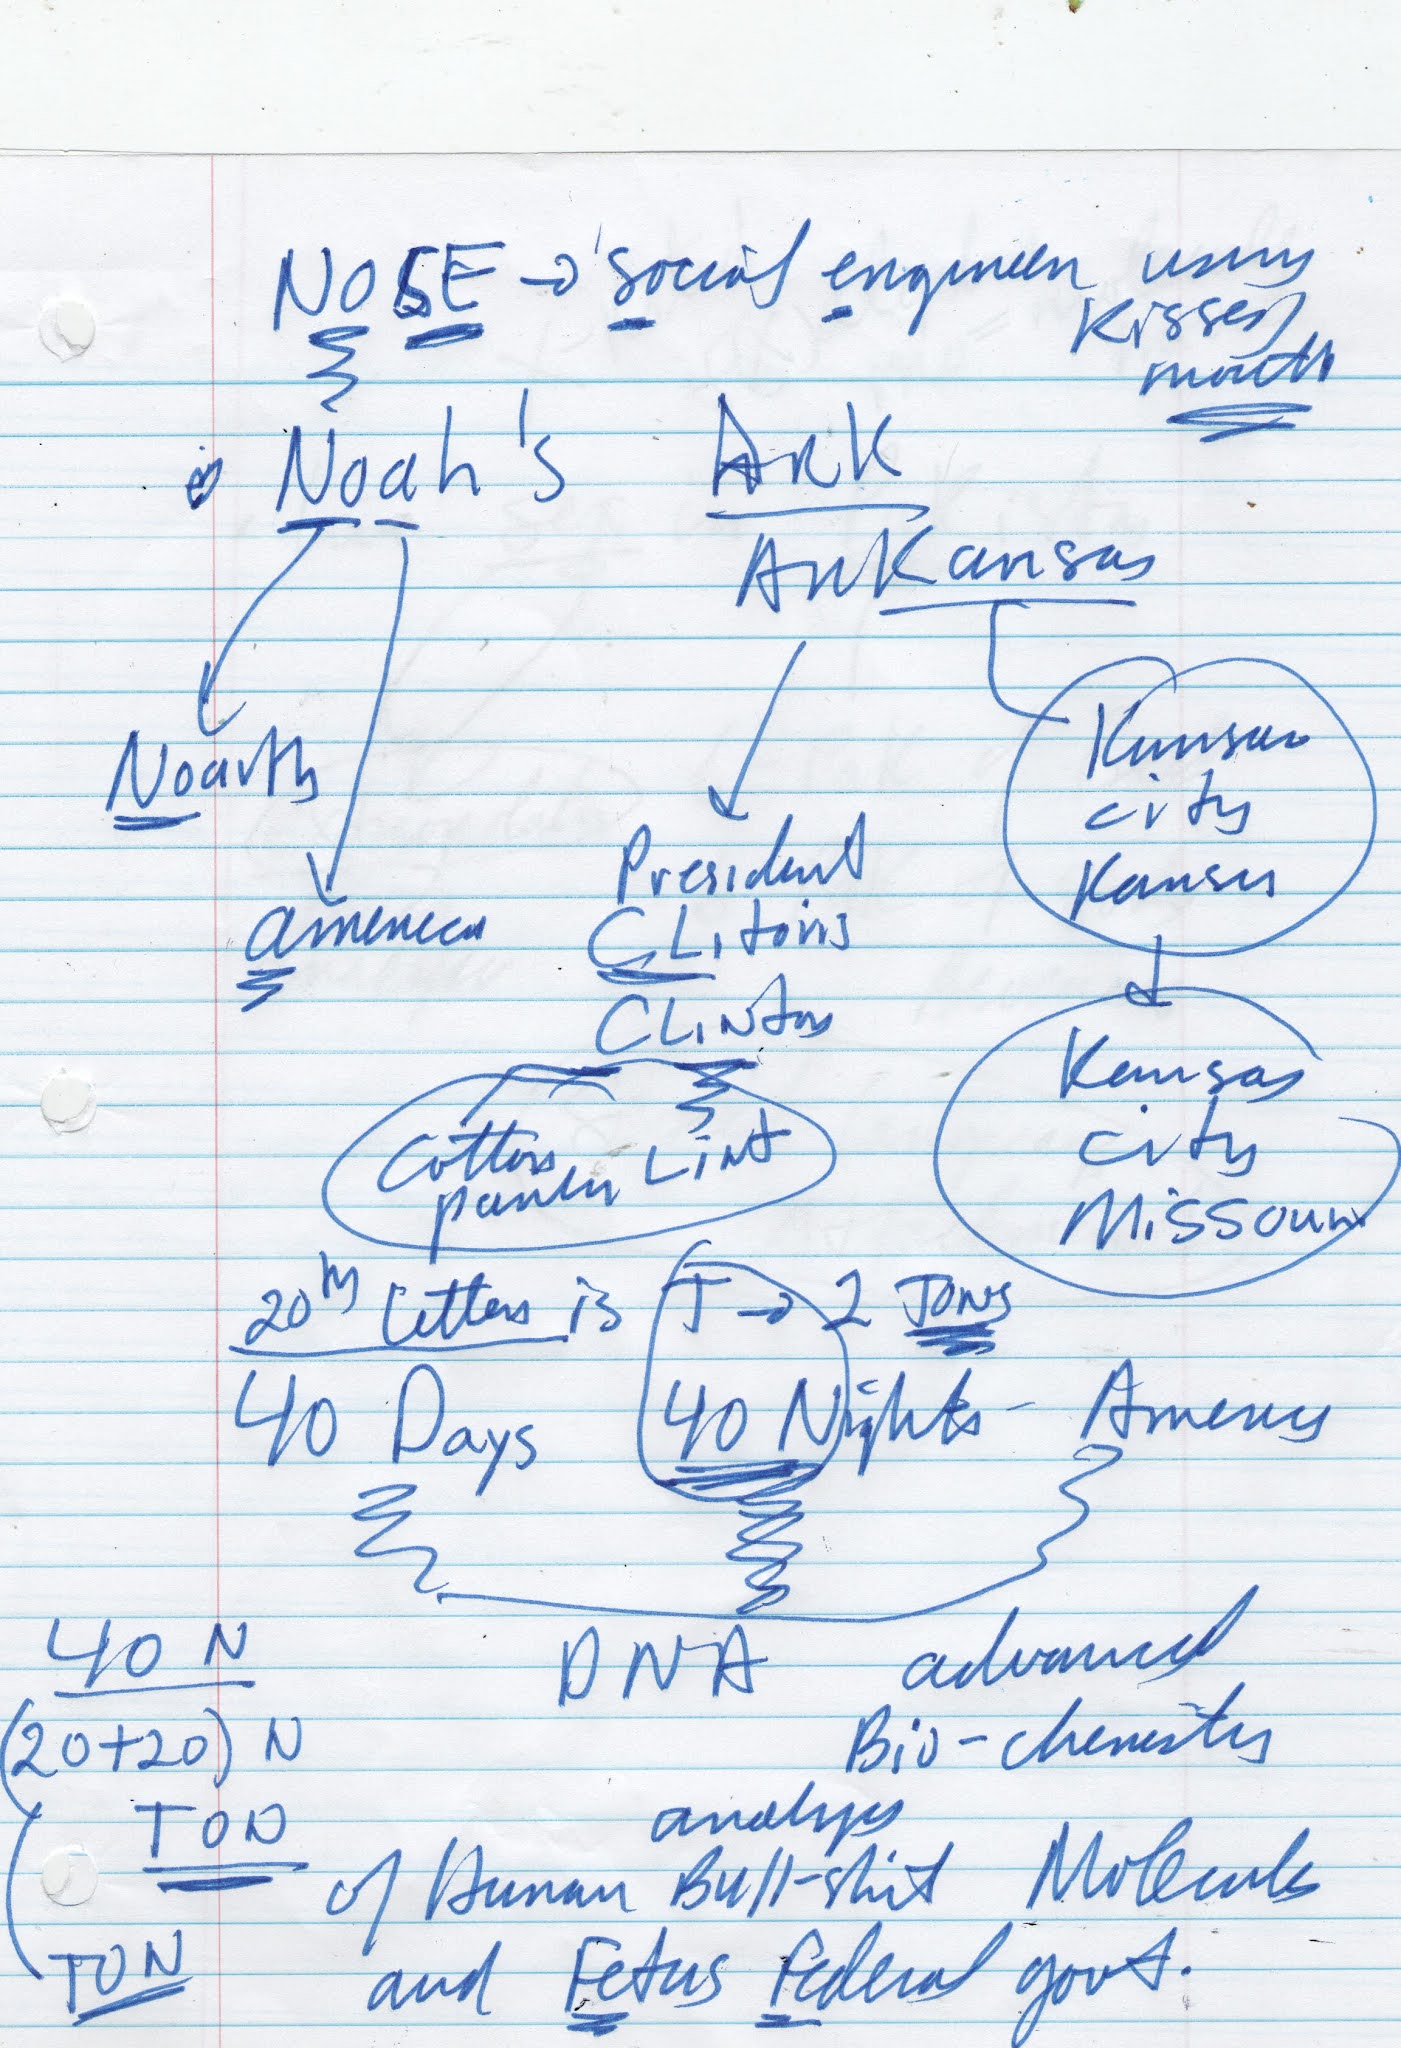 NOSE → social engineer using
kisser,
mouth
Noah's Ark
ArKansas
Noarth
america
President
CLitoris
CLinton
Kansas
city
Kansas
Kansas
city
Missouri
Cotton Lint
20th Letter is T → 2 TONS
40 Days 40 Nights - America
40 N
DNA advanced
(20+20) N
Bio-chemistry
TON
analysis
of Human Bull-shit Molecule
TON
and Fetus Federal govt.